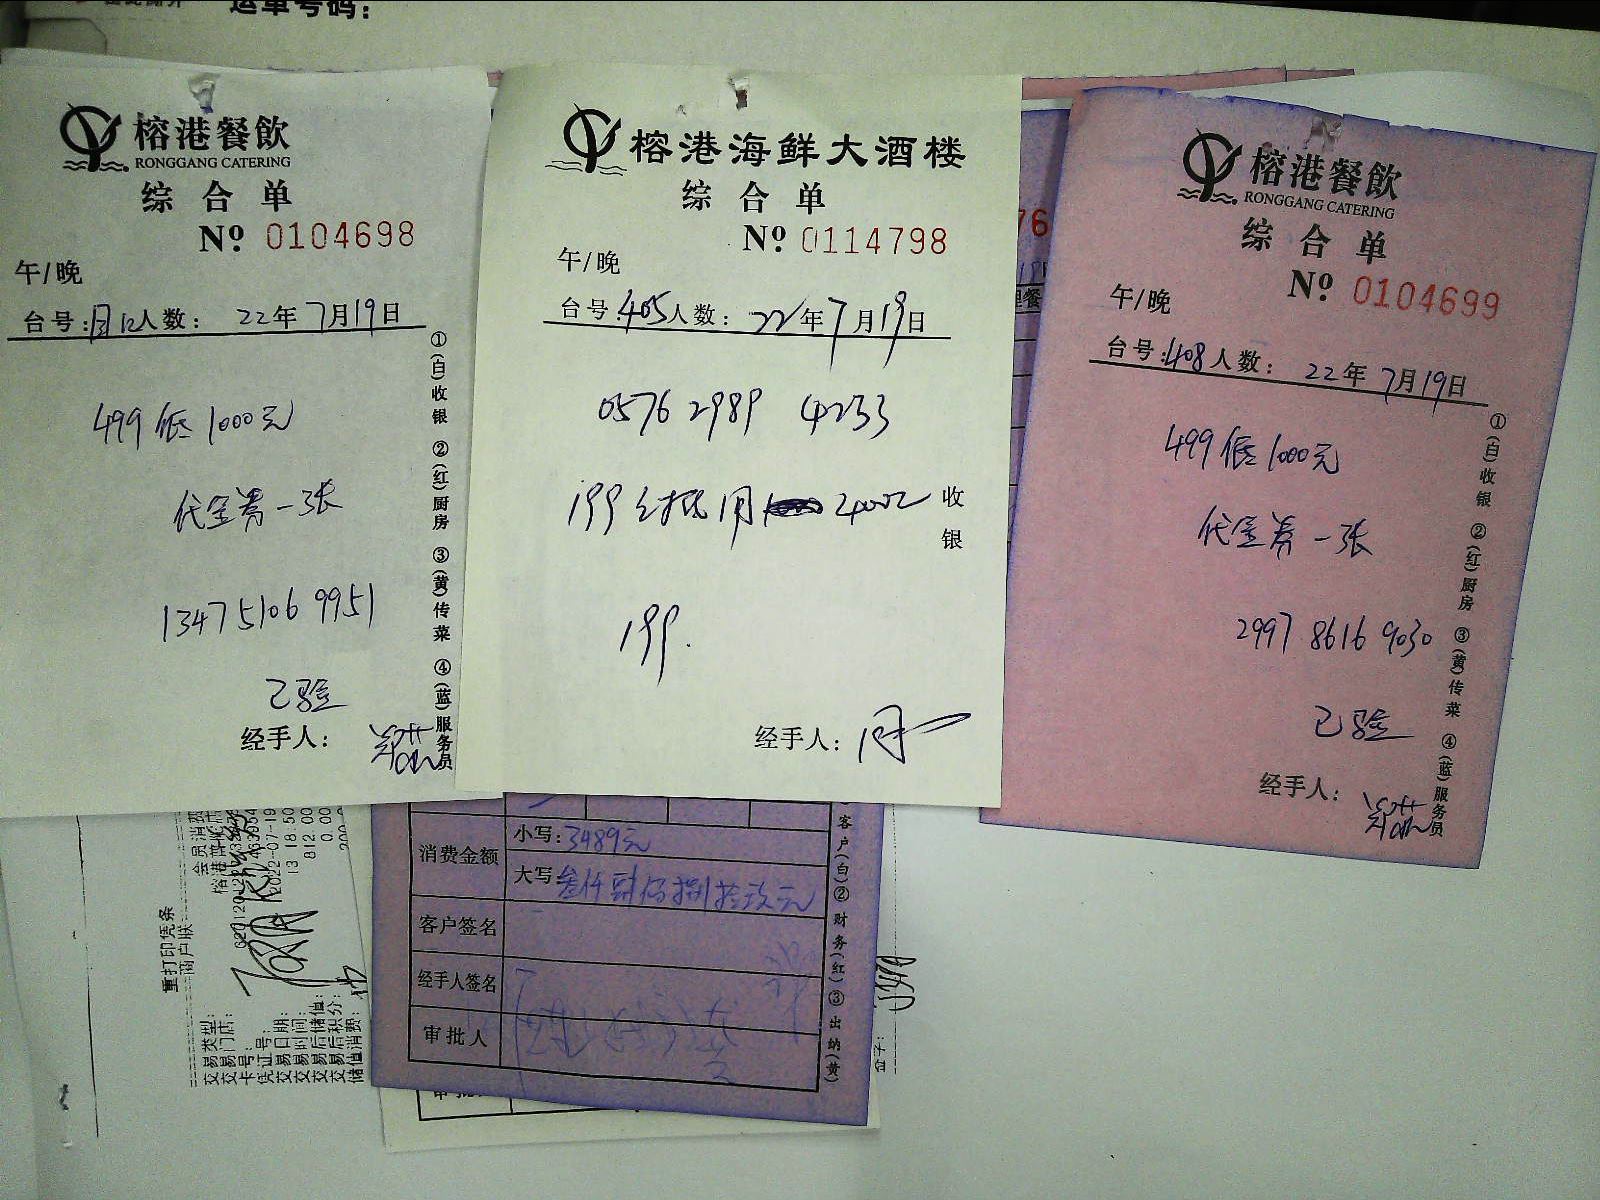 运单号码：
榕港餐飲
RONGGANG CATERING
综合单
№ 0104698
午/晚
台号： 人数： 22年7月19日
499低1000元
代金券一张
1347 5106 9951
已验
经手人：
①(白)收银 ②(红)厨房 ③(黄)传菜 ④(蓝)服务员
榕港海鲜大酒楼
综合单
№ 0114798
午/晚
台号：405人数： 22年7月19日
0576 2989 4233
199
收银
199.
经手人：
榕港餐飲
RONGGANG CATERING
综合单
№ 0104699
午/晚
台号：408人数： 22年7月19日
499低1000元
代金券一张
2997 8616 9030
已验
经手人：
①(白)收银 ②(红)厨房 ③(黄)传菜 ④(蓝)服务员
76
消费金额
小写：3489元
大写：叁仟肆佰捌拾玖元
客户签名
经手人签名
审批人
客户(白)②财务(红)③出纳(黄)
重打印凭条
商户联
会员消费
交易类型：
交易门店：
卡号：
凭证号：
交易日期：
2022-07-19
交易时间：
13 18:50
交易后储值：
812.00
交易后积分：
0.00
储值消费：